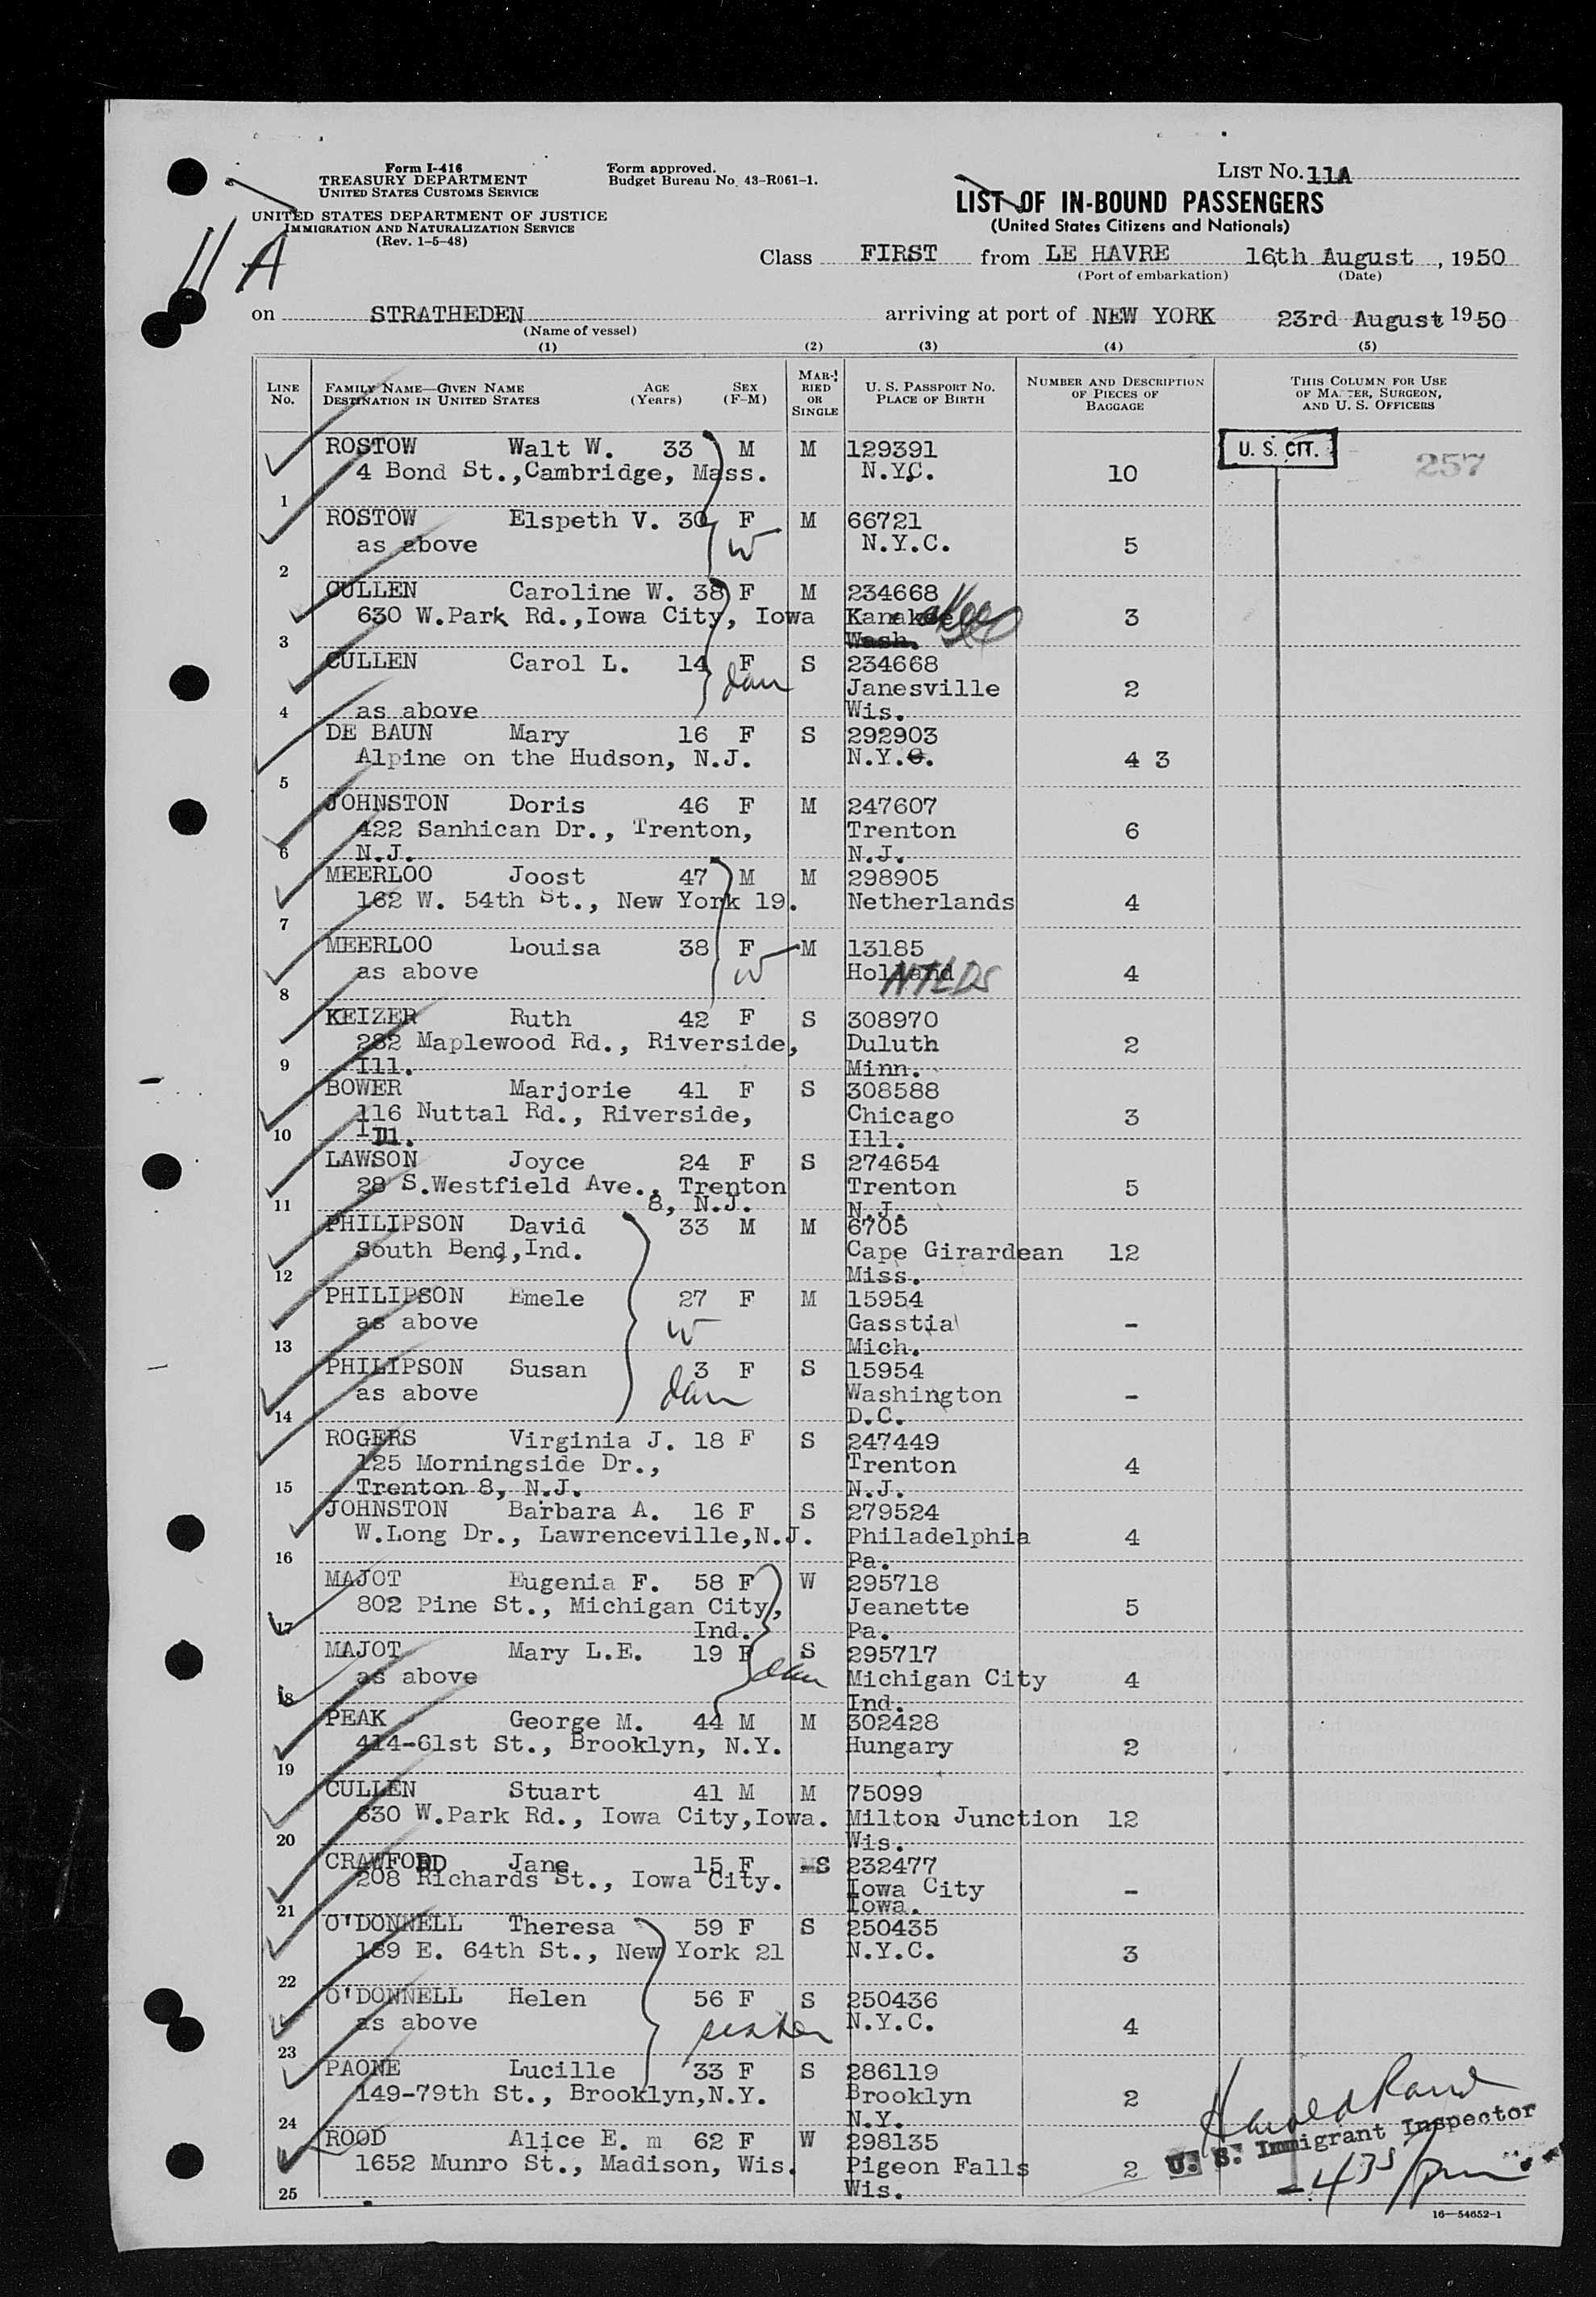 Form I-416
TREASURY DEPARTMENT
UNITED STATES CUSTOMS SERVICE
Form approved.
Budget Bureau No. 43-R061-1.
LIST No. 11A
UNITED STATES DEPARTMENT OF JUSTICE
IMMIGRATION AND NATURALIZATION SERVICE
(Rev. 1-5-48)
11 A
LIST OF IN-BOUND PASSENGERS
(United States Citizens and Nationals)
Class FIRST from LE HAVRE 16th August, 1950
(Port of embarkation) (Date)
on STRATHEDEN arriving at port of NEW YORK 23rd August 1950
(Name of vessel)
(1) (2) (3) (4) (5)
LINE No. FAMILY NAME—GIVEN NAME DESTINATION IN UNITED STATES AGE (Years) SEX (F-M) MARRIED OR SINGLE U. S. PASSPORT No. PLACE OF BIRTH NUMBER AND DESCRIPTION OF PIECES OF BAGGAGE THIS COLUMN FOR USE OF MASTER, SURGEON, AND U. S. OFFICERS
ROSTOW Walt W. 33 M M 129391 U. S. CIT. 257
4 Bond St.,Cambridge, Mass. N.Y.C. 10
1
ROSTOW Elspeth V. 30 F M 66721
as above W N.Y.C. 5
2
CULLEN Caroline W. 38 F M 234668
630 W.Park Rd.,Iowa City, Iowa Kanakee 3
3 Wash.
CULLEN Carol L. 14 F S 234668
dau Janesville 2
4 as above Wis.
DE BAUN Mary 16 F S 292903
Alpine on the Hudson, N.J. N.Y.C. 4 3
5
JOHNSTON Doris 46 F M 247607
422 Sanhican Dr., Trenton, Trenton 6
6 N.J. N.J.
MEERLOO Joost 47 M M 298905
162 W. 54th St., New York 19. Netherlands 4
7
MEERLOO Louisa 38 F M 13185
as above W Holland NTLDS 4
8
KEIZER Ruth 42 F S 308970
282 Maplewood Rd., Riverside, Duluth 2
9 Ill. Minn.
BOWER Marjorie 41 F S 308588
116 Nuttal Rd., Riverside, Chicago 3
10 Ill. Ill.
LAWSON Joyce 24 F S 274654
28 S.Westfield Ave., Trenton Trenton 5
11 8, N.J. N.J.
PHILIPSON David 33 M M 6705
South Bend,Ind. Cape Girardean 12
12 Miss.
PHILIPSON Emele 27 F M 15954
as above W Gasstia -
13 Mich.
PHILIPSON Susan 3 F S 15954
as above dau Washington -
14 D.C.
ROGERS Virginia J. 18 F S 247449
125 Morningside Dr., Trenton 4
15 Trenton 8, N.J. N.J.
JOHNSTON Barbara A. 16 F S 279524
W.Long Dr., Lawrenceville,N.J. Philadelphia 4
16 Pa.
MAJOT Eugenia F. 58 F W 295718
802 Pine St., Michigan City, Jeanette 5
17 Ind. Pa.
MAJOT Mary L.E. 19 F S 295717
as above dau Michigan City 4
18 Ind.
PEAK George M. 44 M M 302428
414-61st St., Brooklyn, N.Y. Hungary 2
19
CULLEN Stuart 41 M M 75099
630 W.Park Rd., Iowa City,Iowa. Milton Junction 12
20 Wis.
CRAWFORD Jane 15 F S 232477
208 Richards St., Iowa City. Iowa City -
21 Iowa.
O'DONNELL Theresa 59 F S 250435
189 E. 64th St., New York 21 N.Y.C. 3
22
O'DONNELL Helen 56 F S 250436
as above sister N.Y.C. 4
23
PAONE Lucille 33 F S 286119
149-79th St., Brooklyn,N.Y. Brooklyn 2
24 N.Y.
ROOD Alice E. m 62 F W 298135
1652 Munro St., Madison, Wis. Pigeon Falls 2
25 Wis.
U. S. Immigrant Inspector
16—54652-1